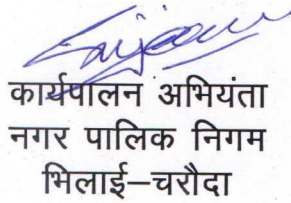 कार्यपालन अभियंता
नगर पालिक निगम
भिलाई–चरौदा